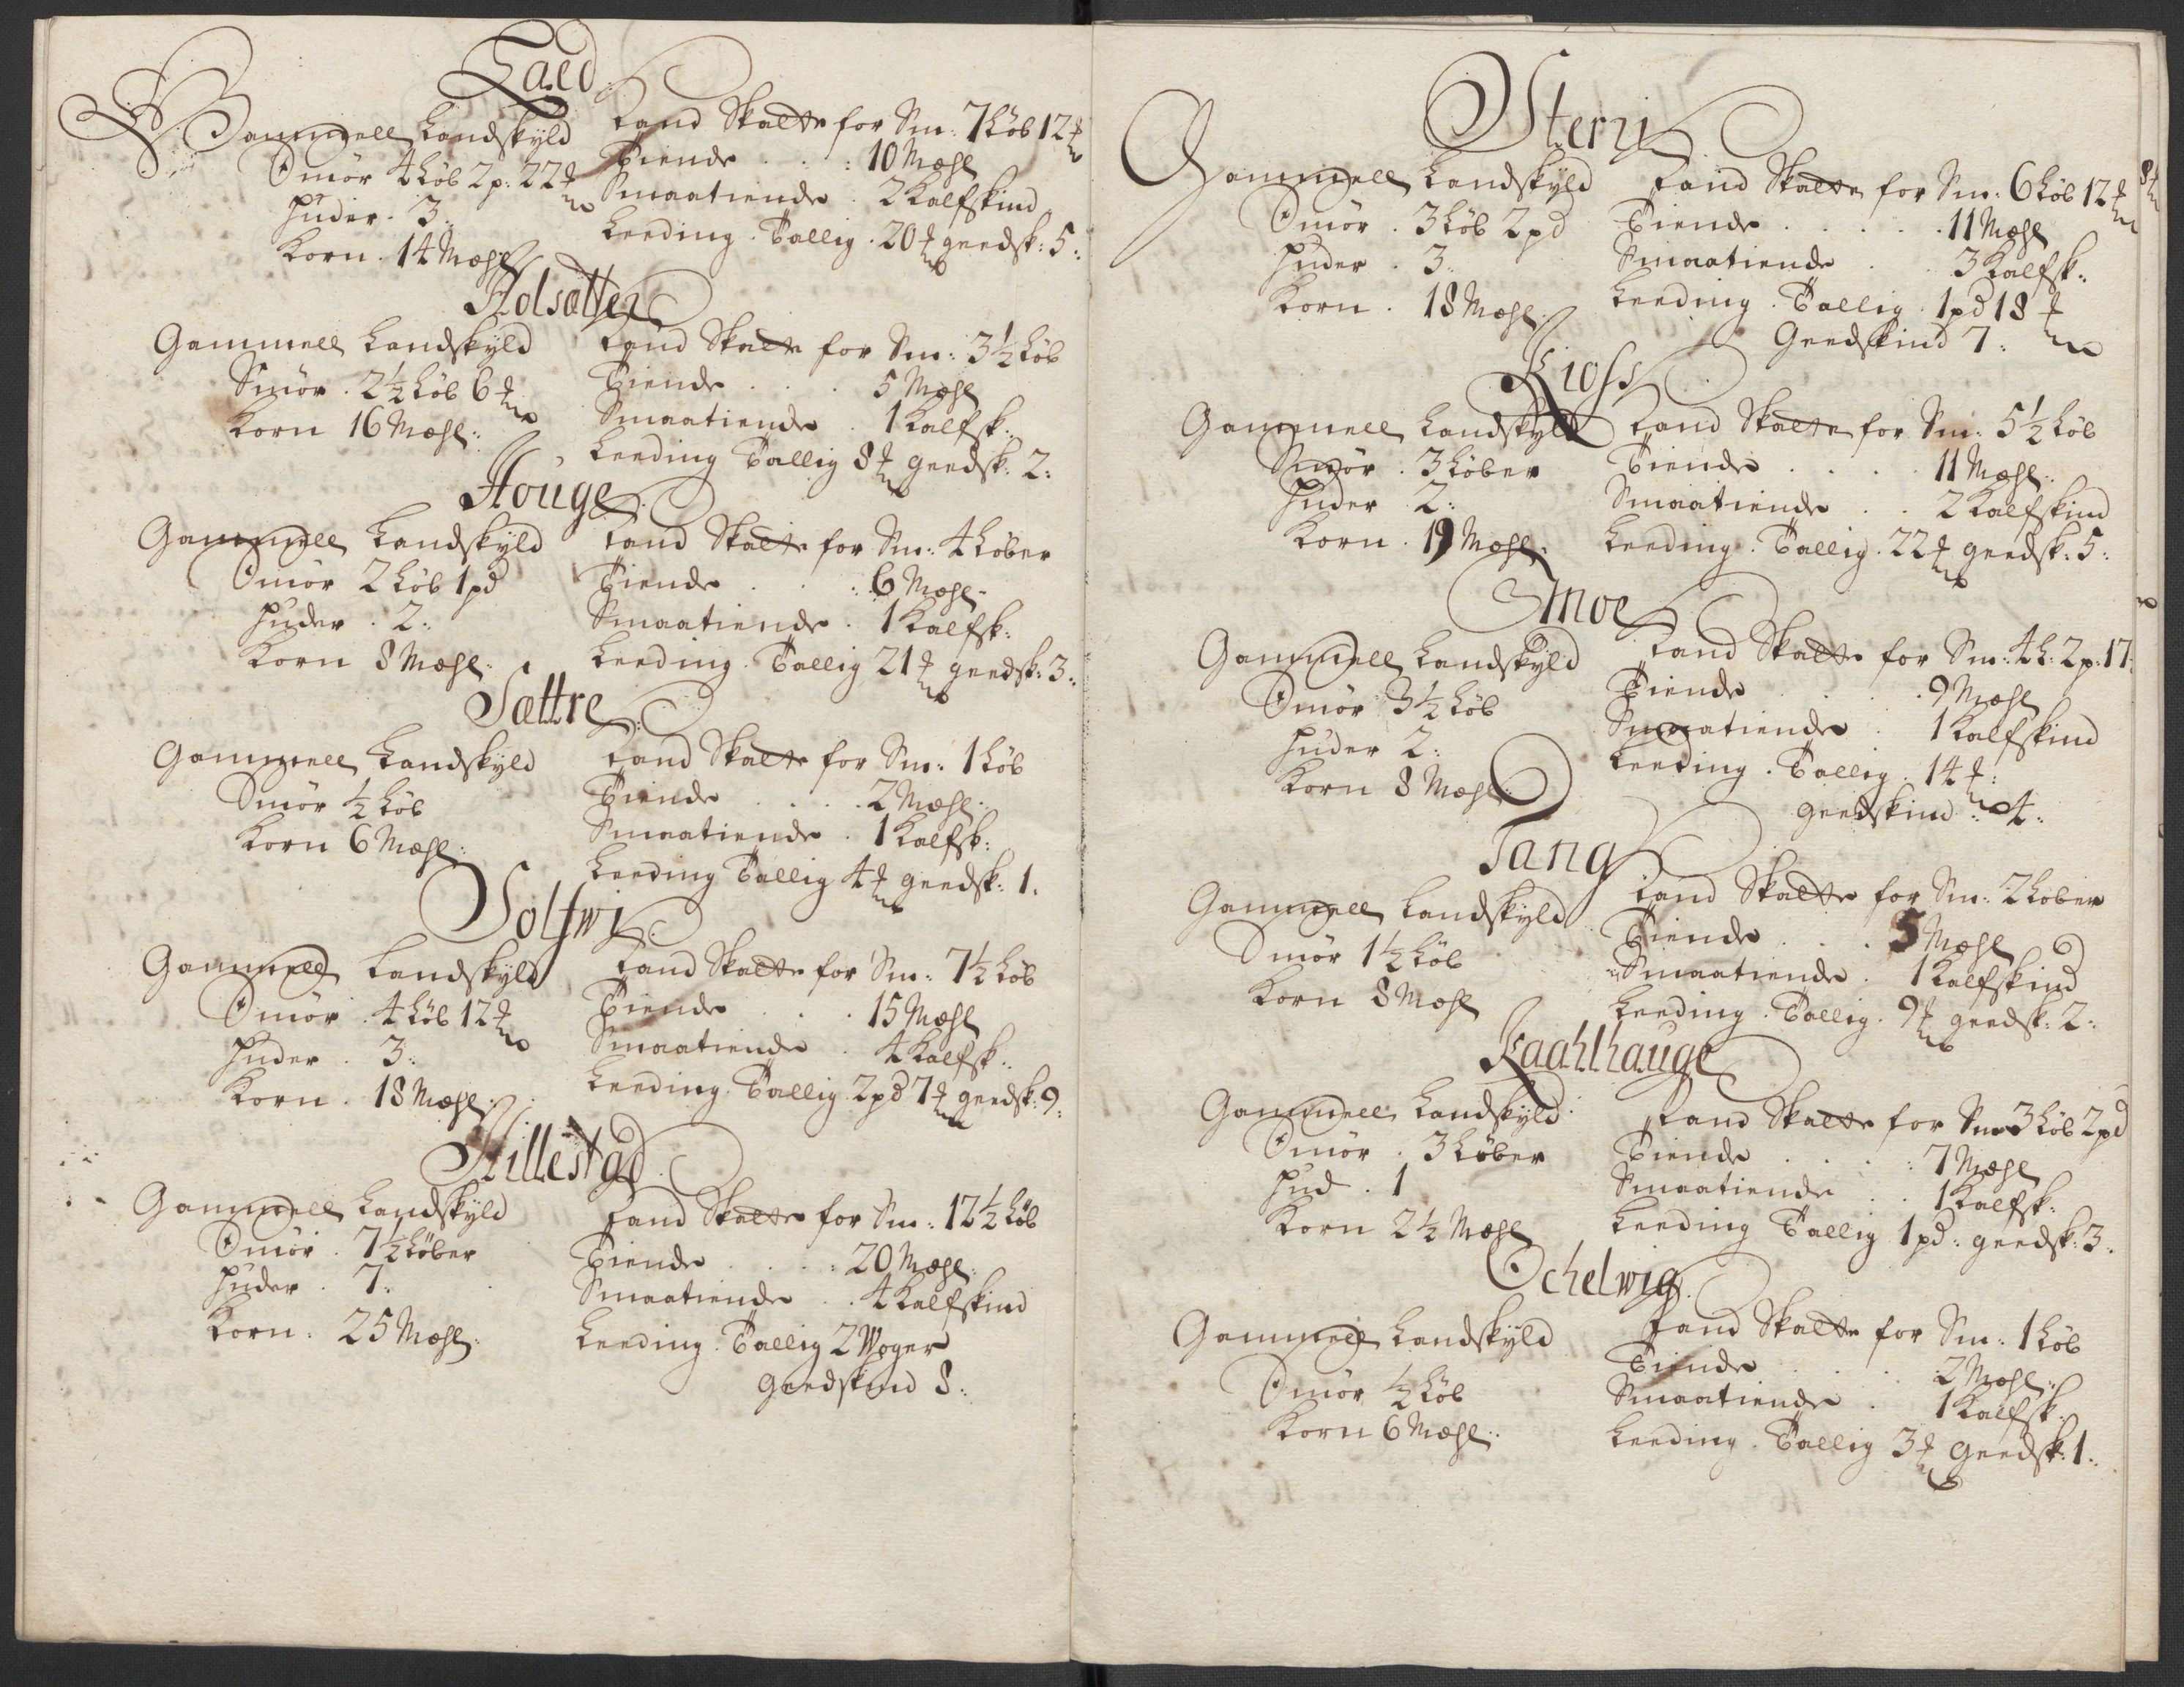 Laed
Gammell Landskyld
Smör 4 Löb 2 p: 22 ℔
Huder. 3:
Korn. 14 Mæhl
Land Skatte for Sm: 7 Löb 12 ℔
Tiende . . : 10 Mæhl
Smaatiende . 2 Kalfskind
Leeding. Tallig. 20 ℔ geedsk: 5:
Holsætter
Gammell Landskyld
Smör . 2½ Löb 6 ℔
Korn 16 Mæhl:
Land Skatte for Sm: 3½ Löb
Tiende . . . 5 Mæhl
Smaatiende . 1 Kalfsk:
Leeding Tallig 8 ℔ geedsk: 2:
Houge
Gammell Landskyld
Smör 2 Löb 1 pd
Huder . 2:
Korn 8 Mæhl:
Land Skatte for Sm: 4 Löber
Tiende . . : 6 Mæhl
Smaatiende . 1 Kalfsk:
Leeding. Tallig 21 ℔ geedsk: 3:
Sættre
Gammell Landskyld
Smör ½ Löb
Korn 6 Mæhl:
Land Skatte for Sm: 1 Löb
Tiende . . . 2 Mæhl:
Smaatiende . 1 Kalfsk:
Leeding Tallig 4 ℔ geedsk: 1.
Solfwi
Gammell Landskyld
Smör . 4 Löb 12 ℔
Huder . 3:
Korn . 18 Mæhl:
Land Skatte for Sm: 7½ Löb
Tiende . . . 15 Mæhl
Smaatiende . 4 Kalfsk:
Leeding. Tallig. 2 pd 7 ℔ geedsk: 9:
Hillestad
Gammell Landskyld
Smör . 7½ Löber
Huder . 7:
Korn . 25 Mæhl:
Land Skatte for Sm: 12½ Löb
Tiende . . . : 20 Mæhl:
Smaatiende . . 4 Kalfskind
Leeding. Tallig 2 Woger
geedskind 8:
Steryi
Gammell Landskyld
Smör . 3 Löb 2 pd
Huder . 3:
Korn . 18 Mæhl:
Land Skatte for Sm: 6 Löb 12 ℔
Tiende . . . . 11 Mæhl
Smaatiende . . 3 Kalfsk:
Leeding. Tallig. 1 pd 18 ℔
Geedskind 7:
Kioss
Gammell Landskyld
Smör . 3 Löber
Huder 2:
Korn . 19 Mæhl:
Land Skatte for Sm: 5½ Löb
Tiende . . . . 11 Mæhl:
Smaatiende . . 2 Kalfskind
Leeding. Tallig. 22 ℔ geedsk: 5:
Moe
Gammell Landskyld
Smör 3½ Löb
Huder 2:
Korn 8 Mæhl
Land Skatte for Sm: 4 L: 2 p: 17:
Tiende . . . . 9 Mæhl
Smaatiende . 1 Kalfskind
Leeding. Tallig. 14 ℔:
geedskind: 4:
Tang
Gammell Landskyld
Smör 1½ Löb
Korn 8 Mæhl
Land Skatte for Sm: 2 Löber
Tiende . . . 5 Mæhl
Smaatiende . 1 Kalfskind
Leeding. Tallig. 9 ℔ geedsk: 2:
Kaahlhauge
Gammell Landskyld
Smör . 3 Löber
Hud . 1
Korn 2½ Mæhl
Land Skatte for Sm 3 Löb 2 pd
Tiende . . . : 7 Mæhl
Smaatiende . . 1 Kalfsk:
Leeding Tallig 1 pd: geedsk: 3.
Ochelwig
Gammell Landskyld
Smör ½ Löb
Korn 6 Mæhl:
Land Skatte for Sm: 1 Löb
Tiende . . . . 2 Mæhl:
Smaatiende . 1 Kalfsk:
Leeding. Tallig 3 ℔ Geedsk: 1: